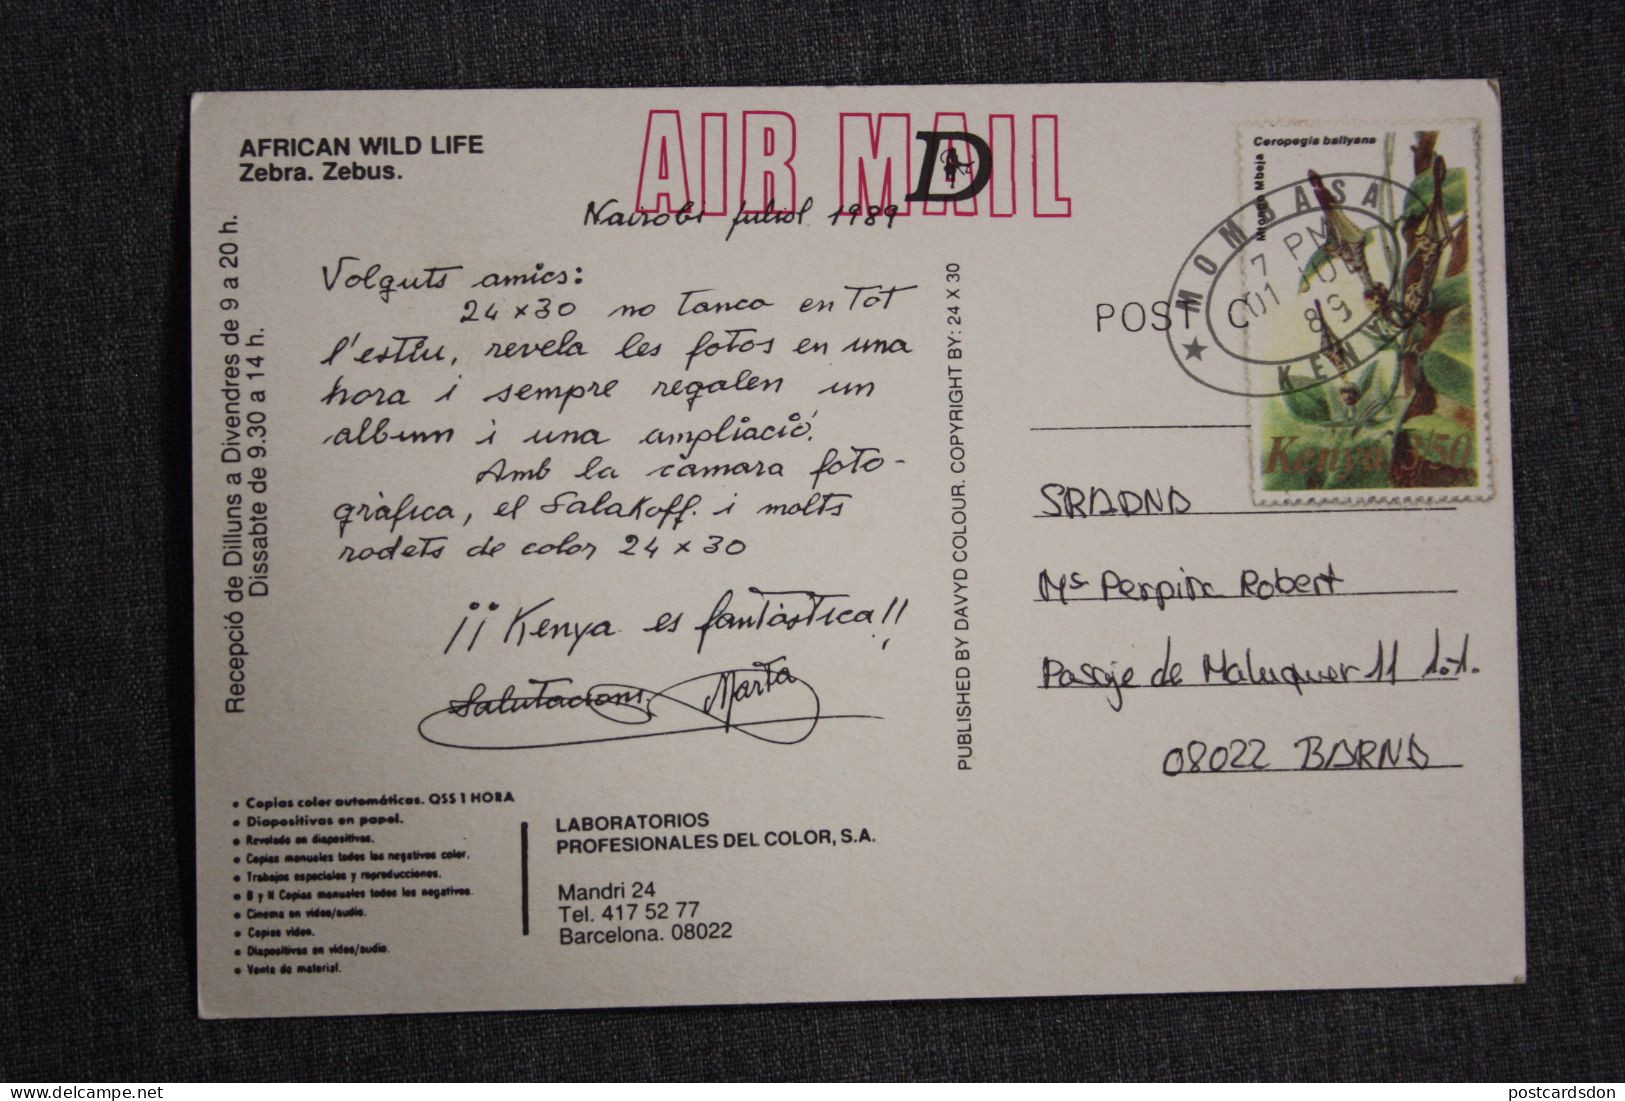 AFRICAN WILD LIFE
Zebra. Zebus.
AIR MAIL
D
Nairobi juliol 1989
Volguts amics:
24x30 no tanca en tot
l'estiu, revela les fotos en una
hora i sempre regalen un
album i una ampliació.
Amb la càmara foto-
gràfica, el Salakoff. i molts
rodets de color 24x30
¡¡Kenya es fantàstica!!
Salutacions, Marta
Recepció de Dilluns a Divendres de 9 a 20 h.
Dissabte de 9.30 a 14 h.
• Copias color automáticas. QSS 1 HORA
• Diapositivas en papel.
• Revelado en diapositivas.
• Copias manuales todos los negativos color.
• Trabajos especiales y reproducciones.
• B y N Copias manuales todos los negativos.
• Cinema en video/audio.
• Copias video.
• Diapositivas en video/audio.
• Venta de material.
LABORATORIOS
PROFESIONALES DEL COLOR, S.A.
Mandri 24
Tel. 417 52 77
Barcelona. 08022
PUBLISHED BY DAVYD COLOUR. COPYRIGHT BY: 24 X 30
POST C
Ceropegia ballyana
Mtongo Mbeja
Kenya 3/50
MOMBASA
7 PM
01 JUL
89
KENYA
SRADNA
Mª Perpiña Robert
Pasaje de Maluquer 11 1º-1ª.
08022 BARNA
postcardsdon